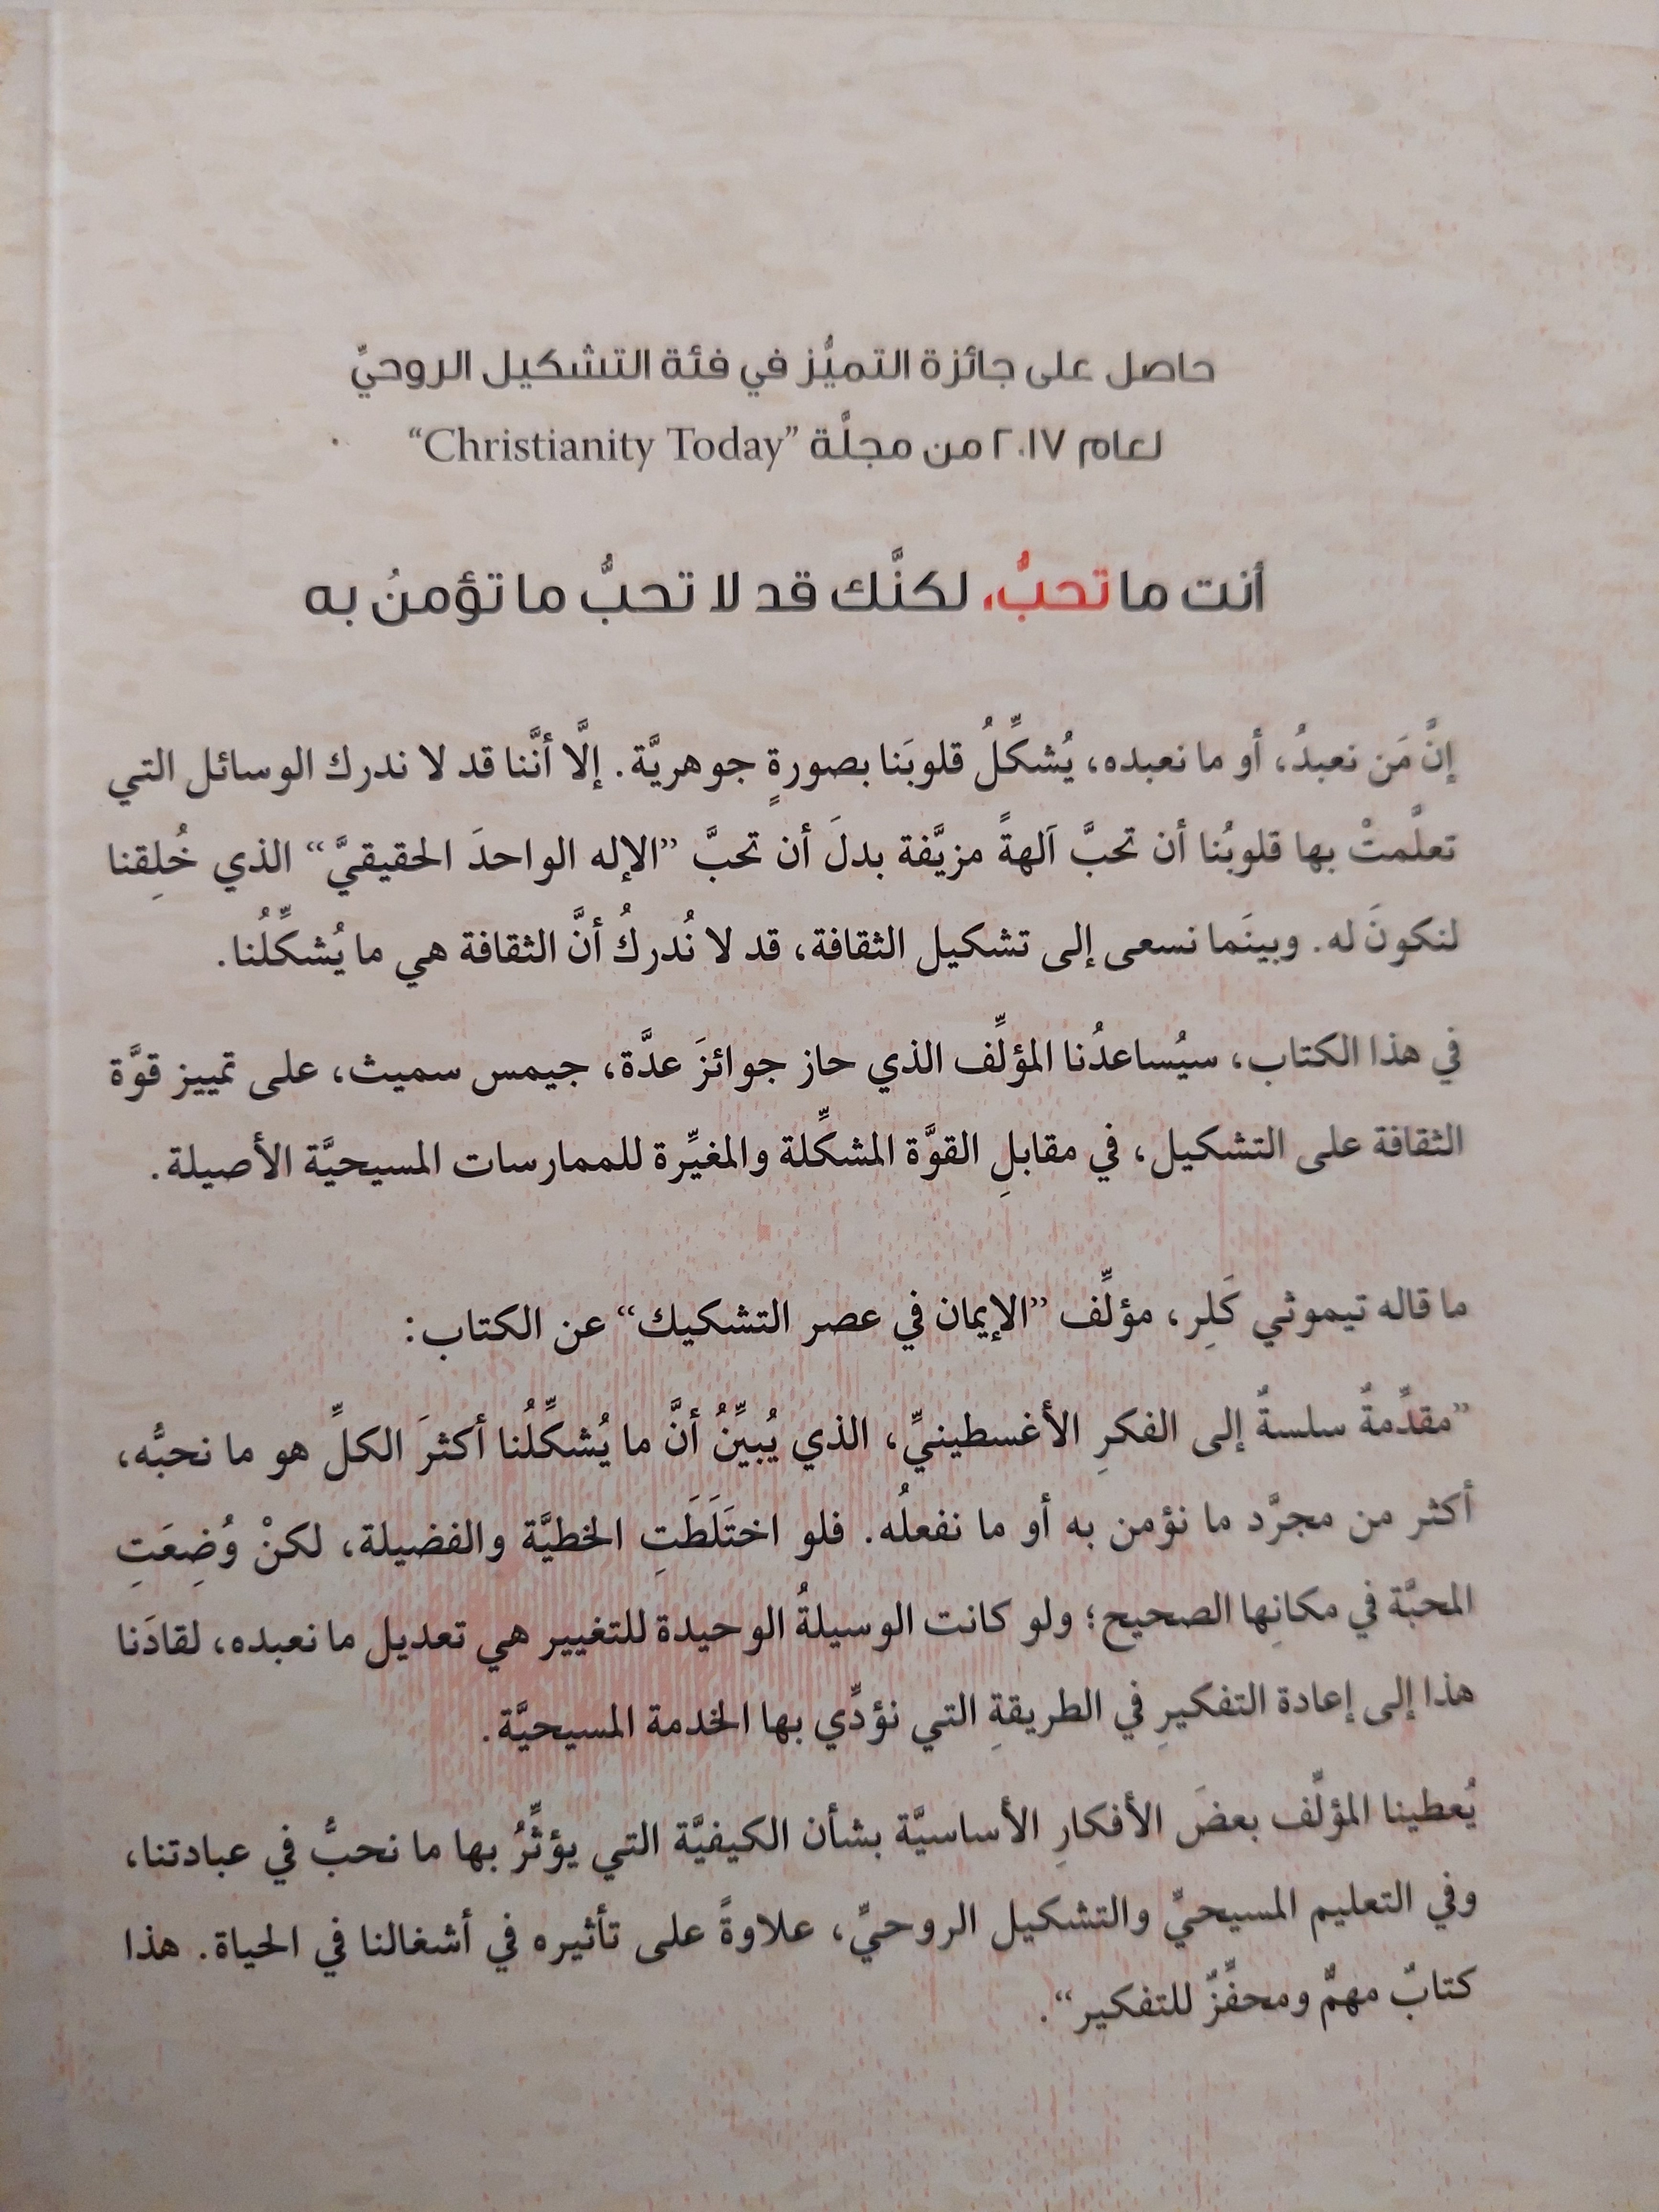 حاصل على جائزة التميُّز في فئة التشكيل الروحيِّ
لعام ٢٠١٧ من مجلَّة "Christianity Today"
أنت ما تحبُّ، لكنَّك قد لا تحبُّ ما تؤمنُ به
إنَّ مَن نعبدُ، أو ما نعبده، يُشكِّلُ قلوبَنا بصورةٍ جوهريَّة. إلَّا أنَّنا قد لا ندرك الوسائل التي
تعلَّمتْ بها قلوبُنا أن تحبَّ آلهةً مزيَّفة بدلَ أن تحبَّ ”الإله الواحدَ الحقيقيَّ“ الذي خُلِقنا
لنكونَ له. وبينَما نسعى إلى تشكيل الثقافة، قد لا نُدركُ أنَّ الثقافة هي ما يُشكِّلُنا.
في هذا الكتاب، سيُساعدُنا المؤلِّف الذي حاز جوائزَ عدَّة، جيمس سميث، على تمييز قوَّة
الثقافة على التشكيل، في مقابلِ القوَّة المشكِّلة والمغيِّرة للممارسات المسيحيَّة الأصيلة.
ما قاله تيموثي كَلِر، مؤلِّف ”الإيمان في عصر التشكيك“ عن الكتاب:
”مقدِّمةٌ سلسةٌ إلى الفكرِ الأغسطينيِّ، الذي يُبيِّنُ أنَّ ما يُشكِّلُنا أكثرَ الكلِّ هو ما نحبُّه،
أكثر من مجرَّد ما نؤمن به أو ما نفعلُه. فلو اختَلَطَتِ الخطيَّة والفضيلة، لكنْ وُضِعَتِ
المحبَّة في مكانِها الصحيح؛ ولو كانت الوسيلةُ الوحيدة للتغيير هي تعديل ما نعبده، لقادَنا
هذا إلى إعادة التفكيرِ في الطريقةِ التي نؤدِّي بها الخدمة المسيحيَّة.
يُعطينا المؤلِّف بعضَ الأفكارِ الأساسيَّة بشأن الكيفيَّة التي يؤثِّرُ بها ما نحبُّ في عبادتنا،
وفي التعليم المسيحيِّ والتشكيل الروحيِّ، علاوةً على تأثيره في أشغالنا في الحياة. هذا
كتابٌ مهمٌّ ومحفِّزٌ للتفكير“.